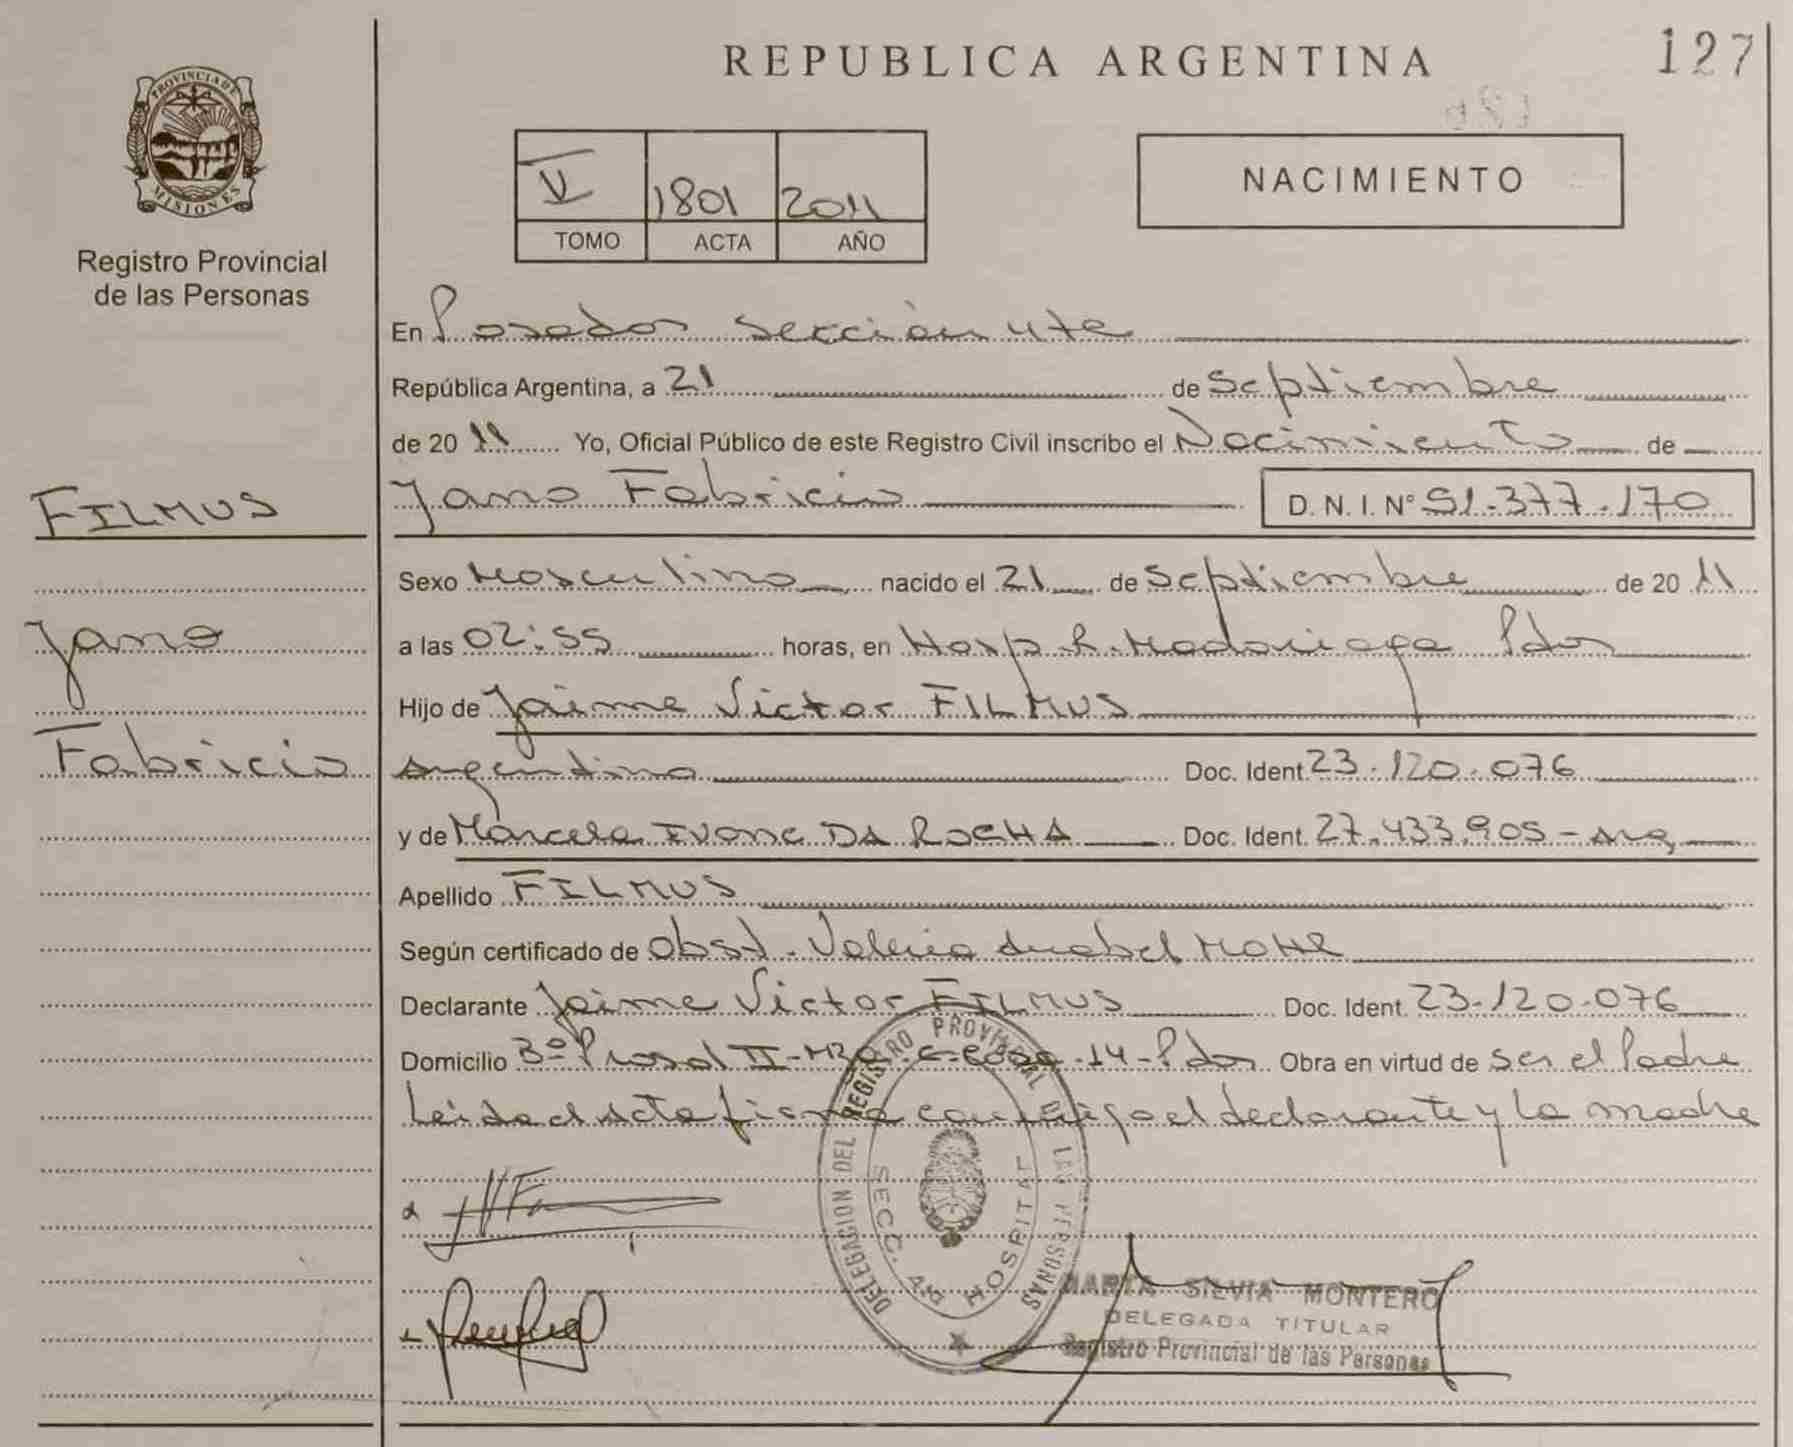 REPUBLICA ARGENTINA
127
PROVINCIA DE
MISIONES
Registro Provincial
de las Personas
V 1801 2011
TOMO ACTA AÑO
NACIMIENTO
En Posadas sección 4ta
República Argentina, a 21 de Septiembre
de 20 11 Yo, Oficial Público de este Registro Civil inscribo el Nacimiento de
FILMUS
Jano Fabricio D.N.I. N° 51.377.170
Sexo Masculino nacido el 21 de Septiembre de 20 11
Jano
a las 02:55 horas, en Hosp. R. Madariaga Pdas
Hijo de Jaime Victor FILMUS
Fabricio
Argentino Doc. Ident. 23.120.076
y de Marcela IVONE DA ROCHA Doc. Ident. 27.433.905 - Arg
Apellido FILMUS
Según certificado de Obst. Valeria Anabel
Declarante Jaime Victor FILMUS Doc. Ident. 23.120.076
Domicilio Bº Prosol II - 14 - Pdas Obra en virtud de ser el Padre
Leida el Acta firma conmigo el declarante y la madre
DELEGACION DEL REGISTRO PROVINCIAL DE LAS PERSONAS
SECC. HOSPITAL
MARTA SILVIA MONTERO
DELEGADA TITULAR
Registro Provincial de las Personas